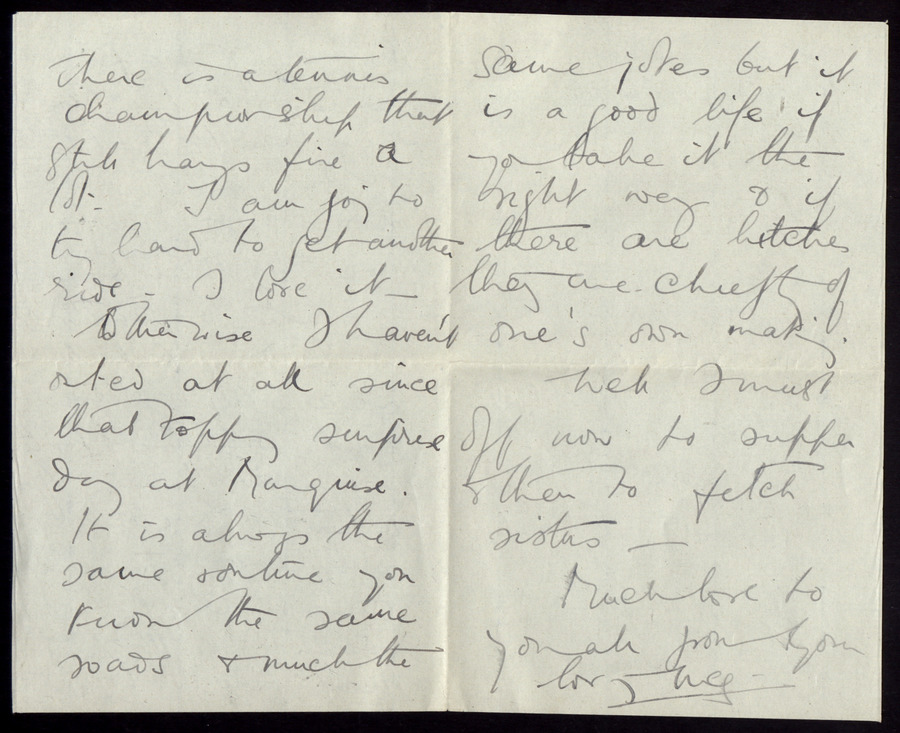 there is a tennis
championship that
still hangs fire a
bit. I am going to
try hard to get another
ride - I love it -
Otherwise I haven't
at all since
that topping surprise
day at Marquise.
It is always the
same routine you
know the same
roads & much the
same jokes but it
is a good life if
you take it the
right way & if
there are hitches
they are chiefly of
one's own making.
Well I must
off now to supper
& then to fetch
sisters —
Much love to
you all from